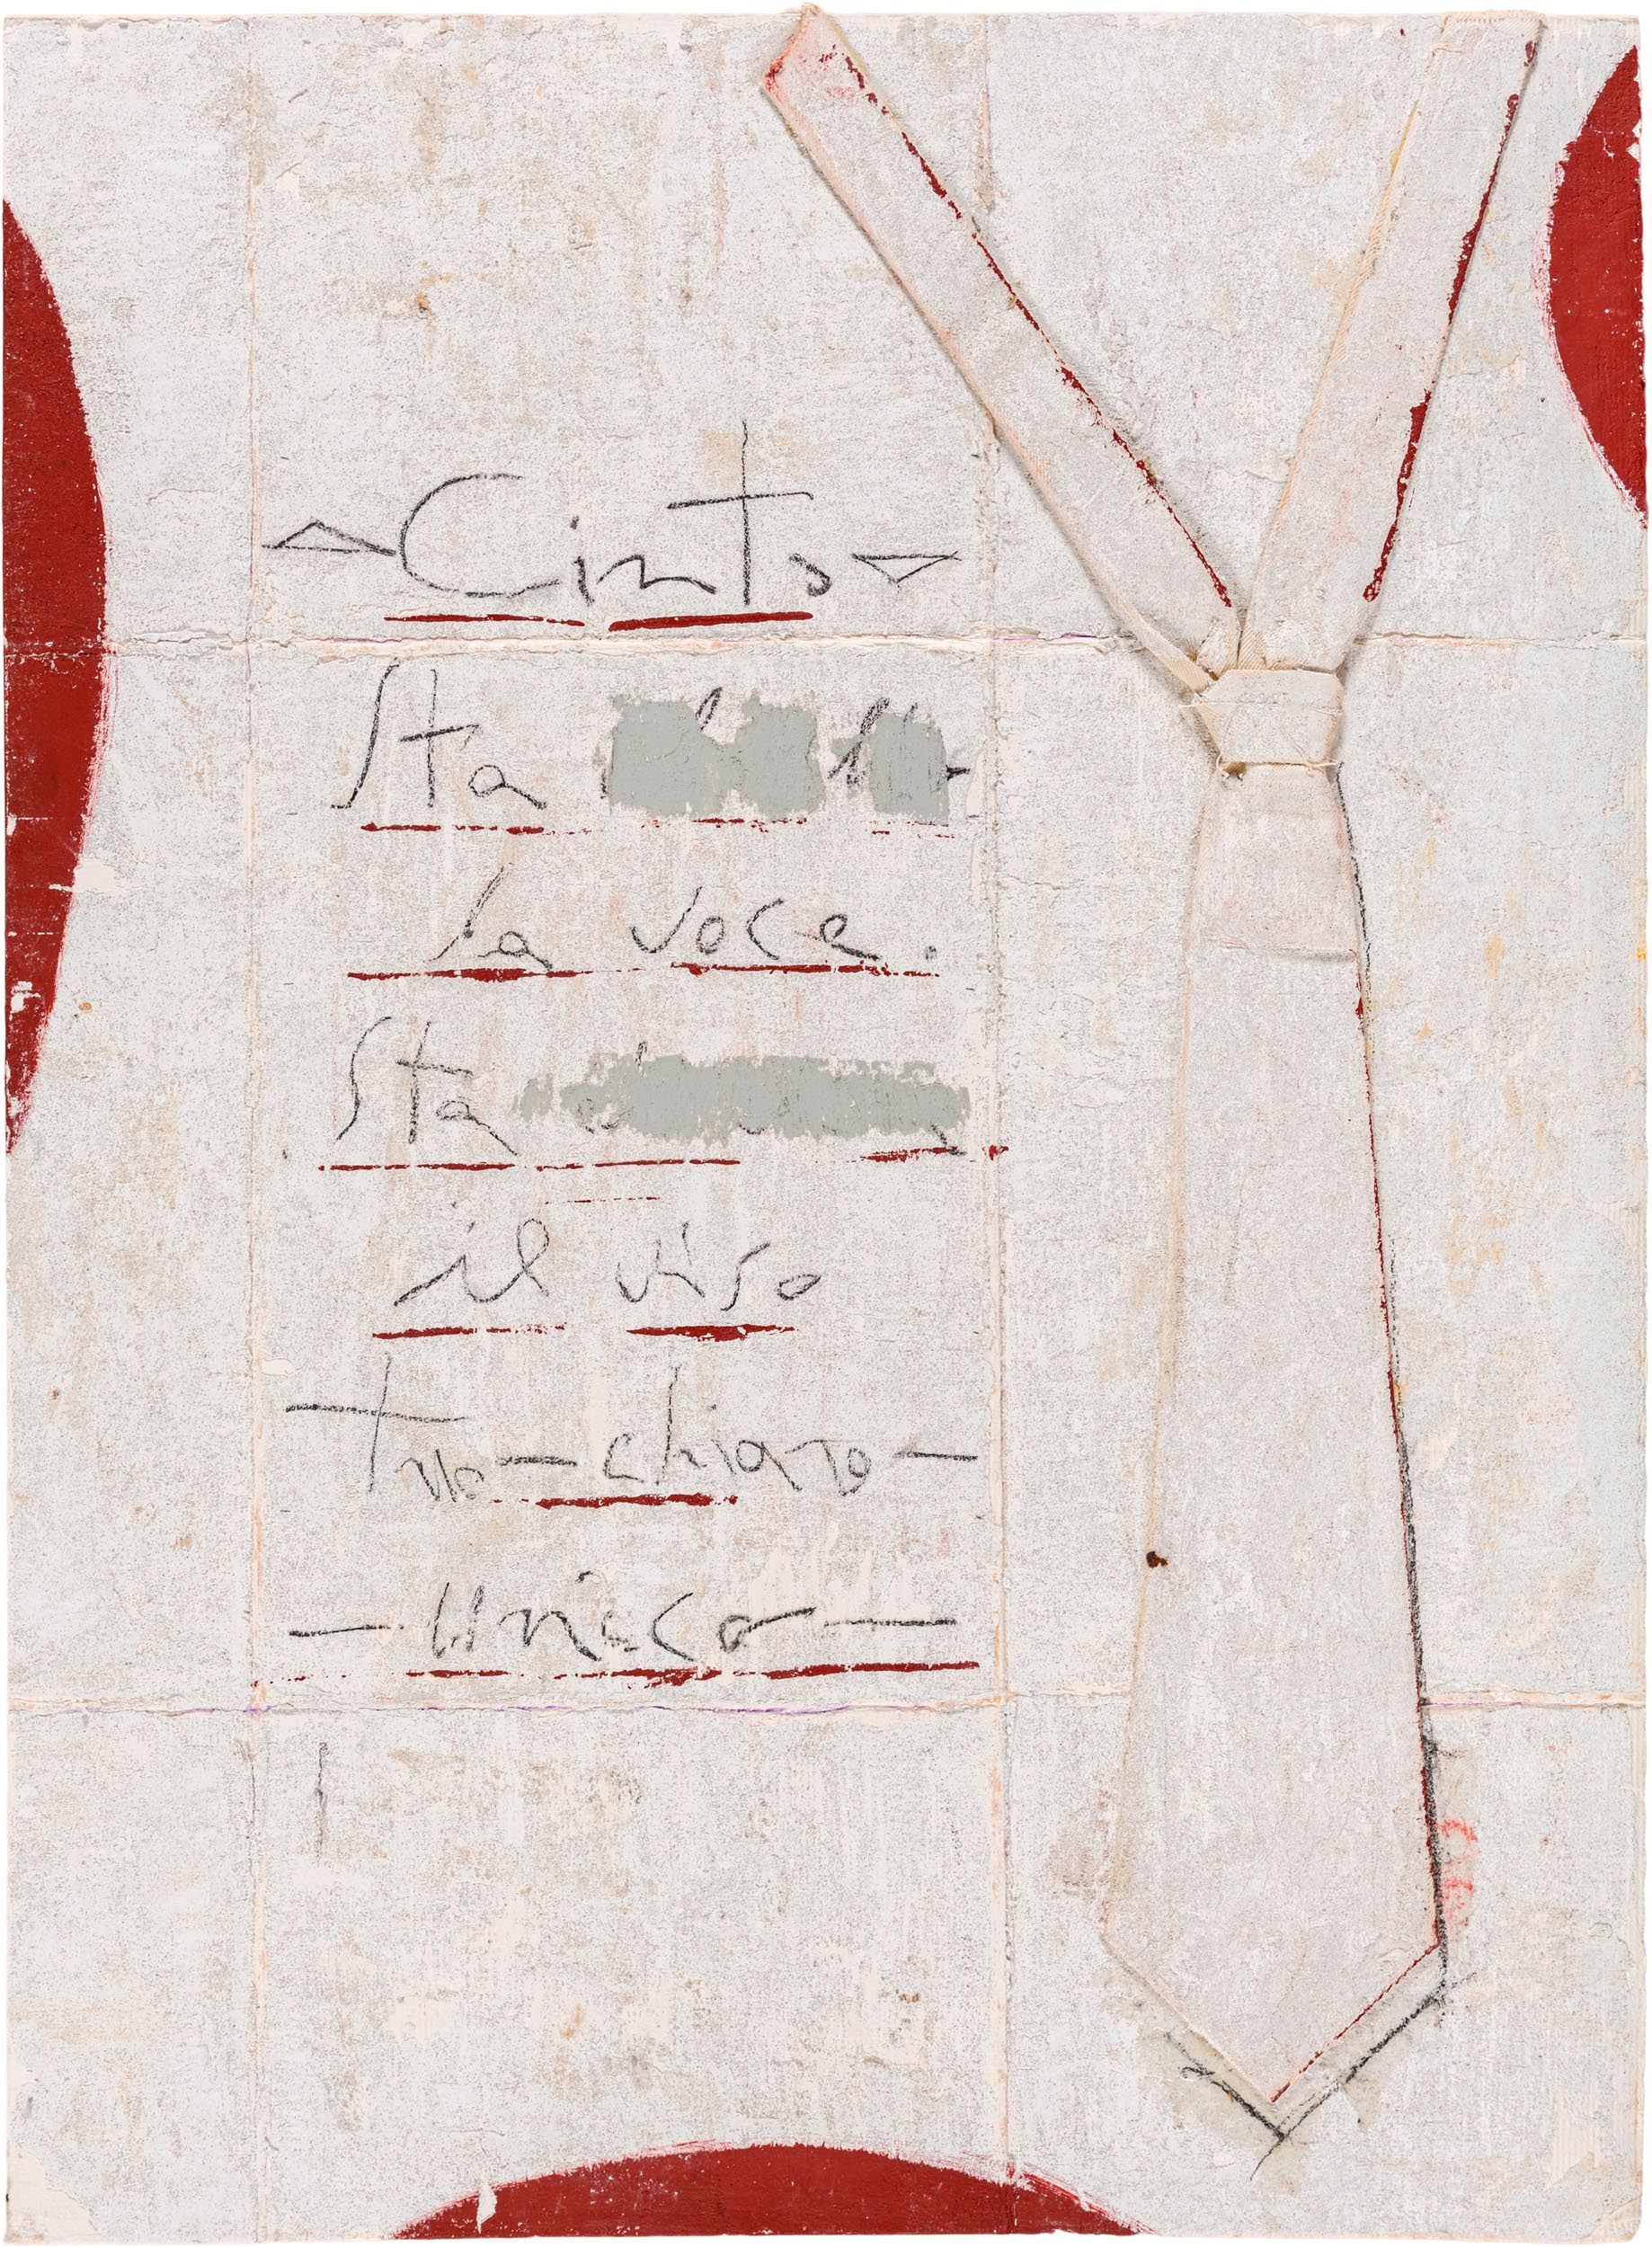 Cinto
Sta
la voce.
Sta
il viso
Tuo - chiaro -
- Unico -